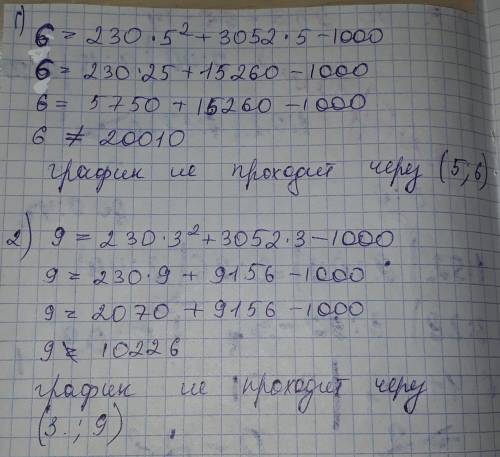 1) 6 = 230·5² + 3052·5 – 1000
6 = 230·25 + 15260 – 1000
6 = 5750 + 15260 – 1000
6 ≠ 20010
график не проходит через (5; 6)
2) 9 = 230·3² + 3052·3 – 1000
9 = 230·9 + 9156 – 1000
9 = 2070 + 9156 – 1000
9 ≠ 10226
график не проходит через
(3.; 9)